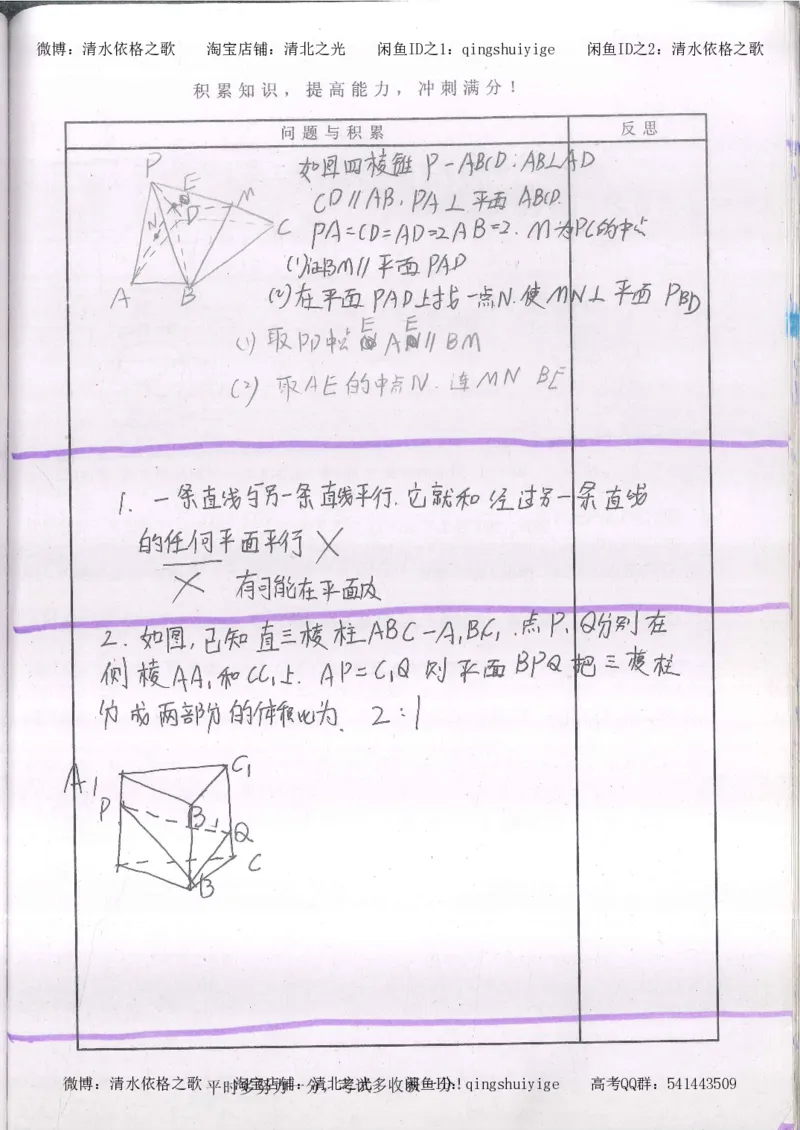 微博：清水依格之歌 淘宝店铺：清北之光 闲鱼ID之1：qingshuiyige 闲鱼ID之2：清水依格之歌
积累知识，提高能力，冲刺满分！
问题与积累 反思
如图四棱锥 P-ABCD. AB⊥AD
CD∥AB. PA⊥平面 ABCD.
PA=CD=AD=2AB=2. M为PC的中点
(1)证BM∥平面 PAD
(2)在平面 PAD上找一点N. 使MN⊥平面 PBD
P
E
M
D
N
C
A
B
(1) 取PD中点 E AE∥BM
(2) 取AE的中点N. 连MN BE
1. 一条直线与另一条直线平行. 它就和经过另一条直线
的任何平面平行 ×
× 有可能在平面内
2. 如图,已知直三棱柱ABC-A₁BC₁. 点P、Q分别在
侧棱AA₁和CC₁上. AP=C₁Q 则平面BPQ把三棱柱
分成两部分的体积比为. 2:1
A₁
C₁
P
B₁
Q
C
B
微博：清水依格之歌 淘宝店铺：清北之光 闲鱼ID：qingshuiyige 高考QQ群：541443509